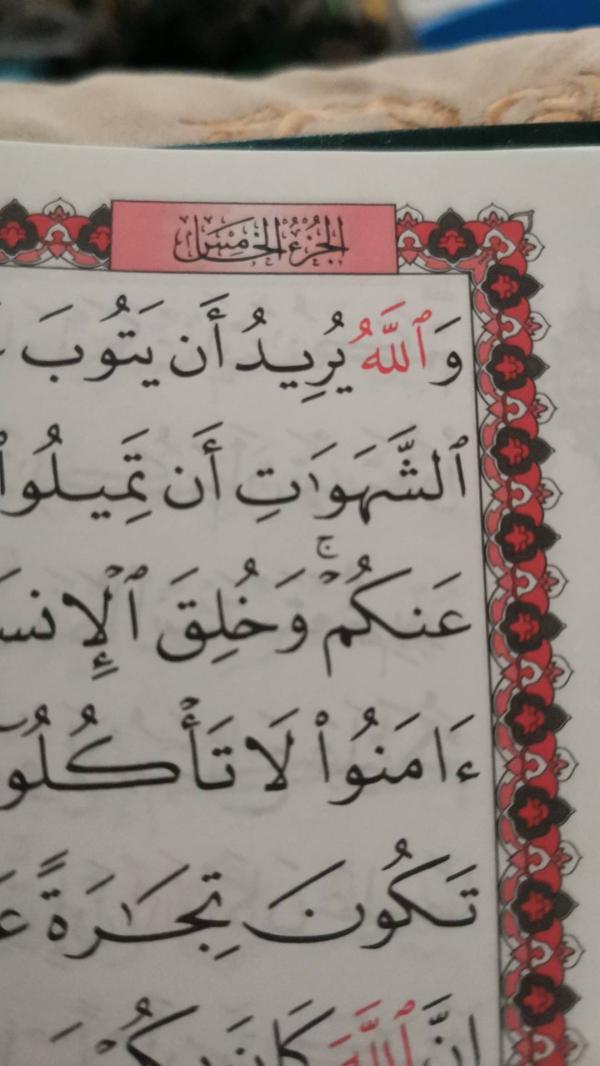 الجزء الخامس
وَٱللَّهُ يُرِيدُ أَن يَتُوبَ
ٱلشَّهَوَٰتِ أَن تَمِيلُوا۟
عَنكُمْ ۚ وَخُلِقَ ٱلْإِنسَ
ءَامَنُوا۟ لَا تَأْكُلُوٓ
تَكُونَ تِجَٰرَةً عَ
إِنَّ ٱللَّهَ كَانَ بِكُمْ